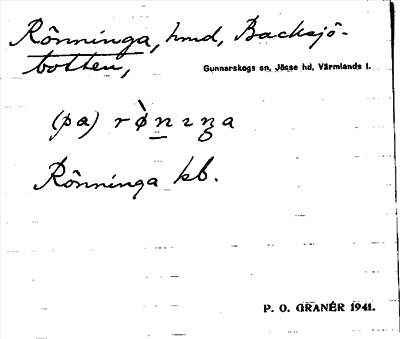 Rönninga, hmd, Backsjö-
botten,
Gunnarskogs sn, Jösse hd, Värmlands l.
(pa) rø̀nɪŋa
Rönninga kb.
P. O. GRANÉR 1941.